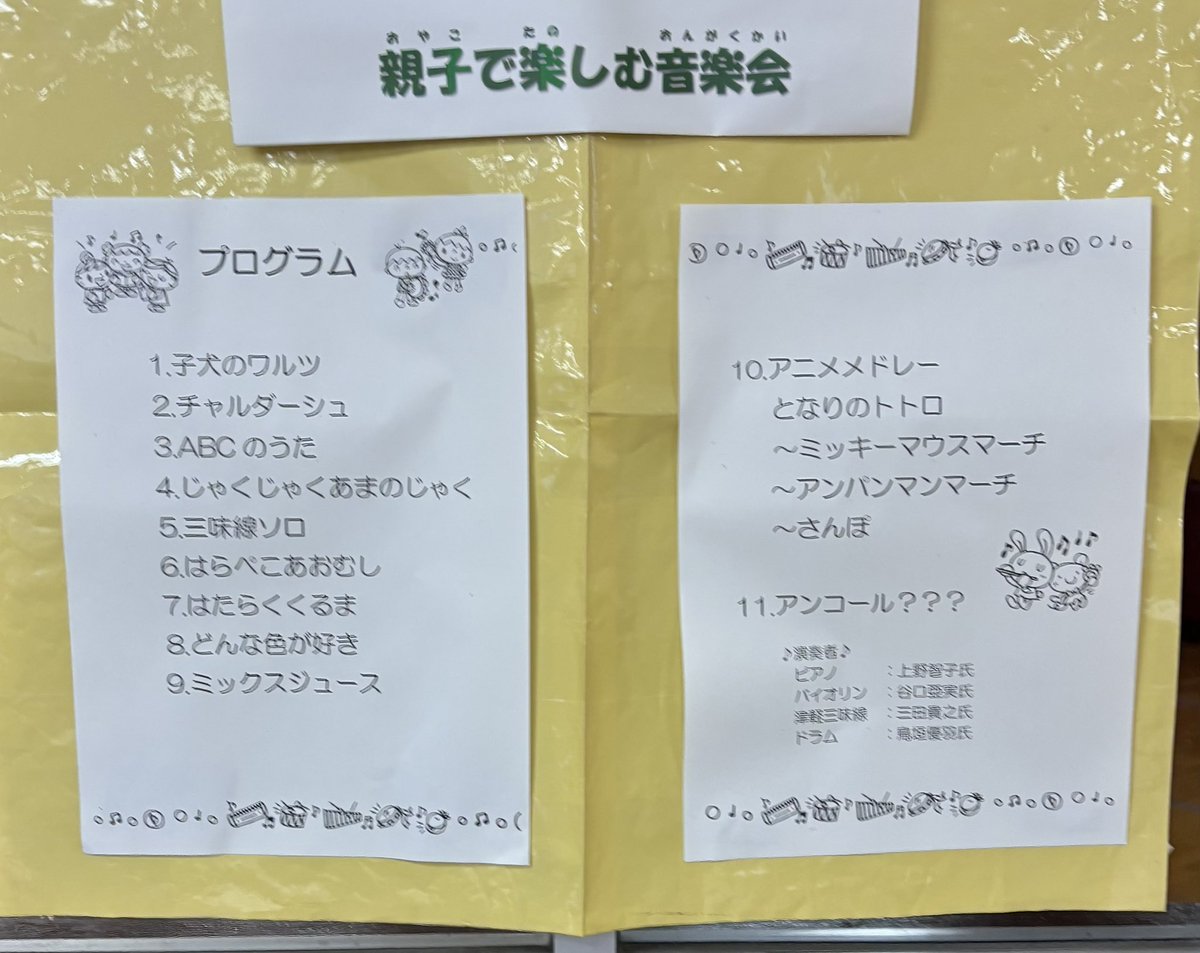 おやこ たの おんがくかい
親子で楽しむ音楽会
プログラム
1.子犬のワルツ
2.チャルダーシュ
3.ABCのうた
4.じゃくじゃくあまのじゃく
5.三味線ソロ
6.はらぺこあおむし
7.はたらくくるま
8.どんな色が好き
9.ミックスジュース
10.アニメメドレー
となりのトトロ
～ミッキーマウスマーチ
～アンパンマンマーチ
～さんぽ
11.アンコール？？？
♪演奏者♪
ピアノ ：上野智子氏
バイオリン ：谷口亜実氏
津軽三味線 ：三田貴之氏
ドラム ：鳥垣優羽氏